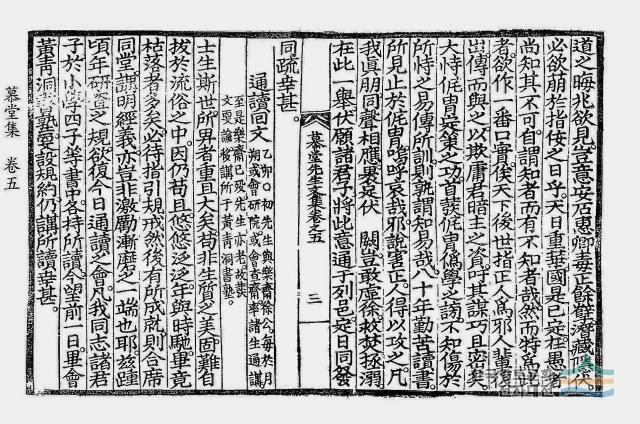 道之晦兆欲見豈意安居惠卿毒
必欲萌於指侫之日乎天日重華國是已定在愚者
尚知其不可自謂知者而有不知者哉然而特爲此
者欲作一番口實俟天下後世指正人爲邪人輩
豈傳而與之以欺庸君暗主之資吁其謀巧且密矣
大恃侂冑定策之功首發侂冑僞學之謗不知傷於
所恃之易傳所訓則孰謂知易哉八十年勤苦讀書
所見止於侂冑嗚呼哀哉邪說害正人得以攻之凡
我眞朋同聲相應畏哀伏 闕豈敢虛徐救焚拯溺
在此一舉伏願諸君子將此意通于列邑定日同發
慕堂先生文集卷之五
三
同疏幸甚
通讀回文
乙卯〇初先生與樂齋徐公每於月
朔或會研院或會齋齋率諸生通講
至是樂齋已歿先生亦老故裁
文更論移講所于黃靑洞書塾
士生斯世所畀者重且大矣苟非生質之美固難自
拔於流俗之中因仍苟且悠悠泛泛年與時馳畢竟
枯落者多矣必待指引規戒然後有所成就則合席
同堂講明經義亦豈非激勵漸磨之一端也耶玆踵
頃年研齋之規欲復今日通讀之會凡我同志諸君
子於小學四子等書中各持所讀
黃靑洞
幸甚
慕堂集 卷五